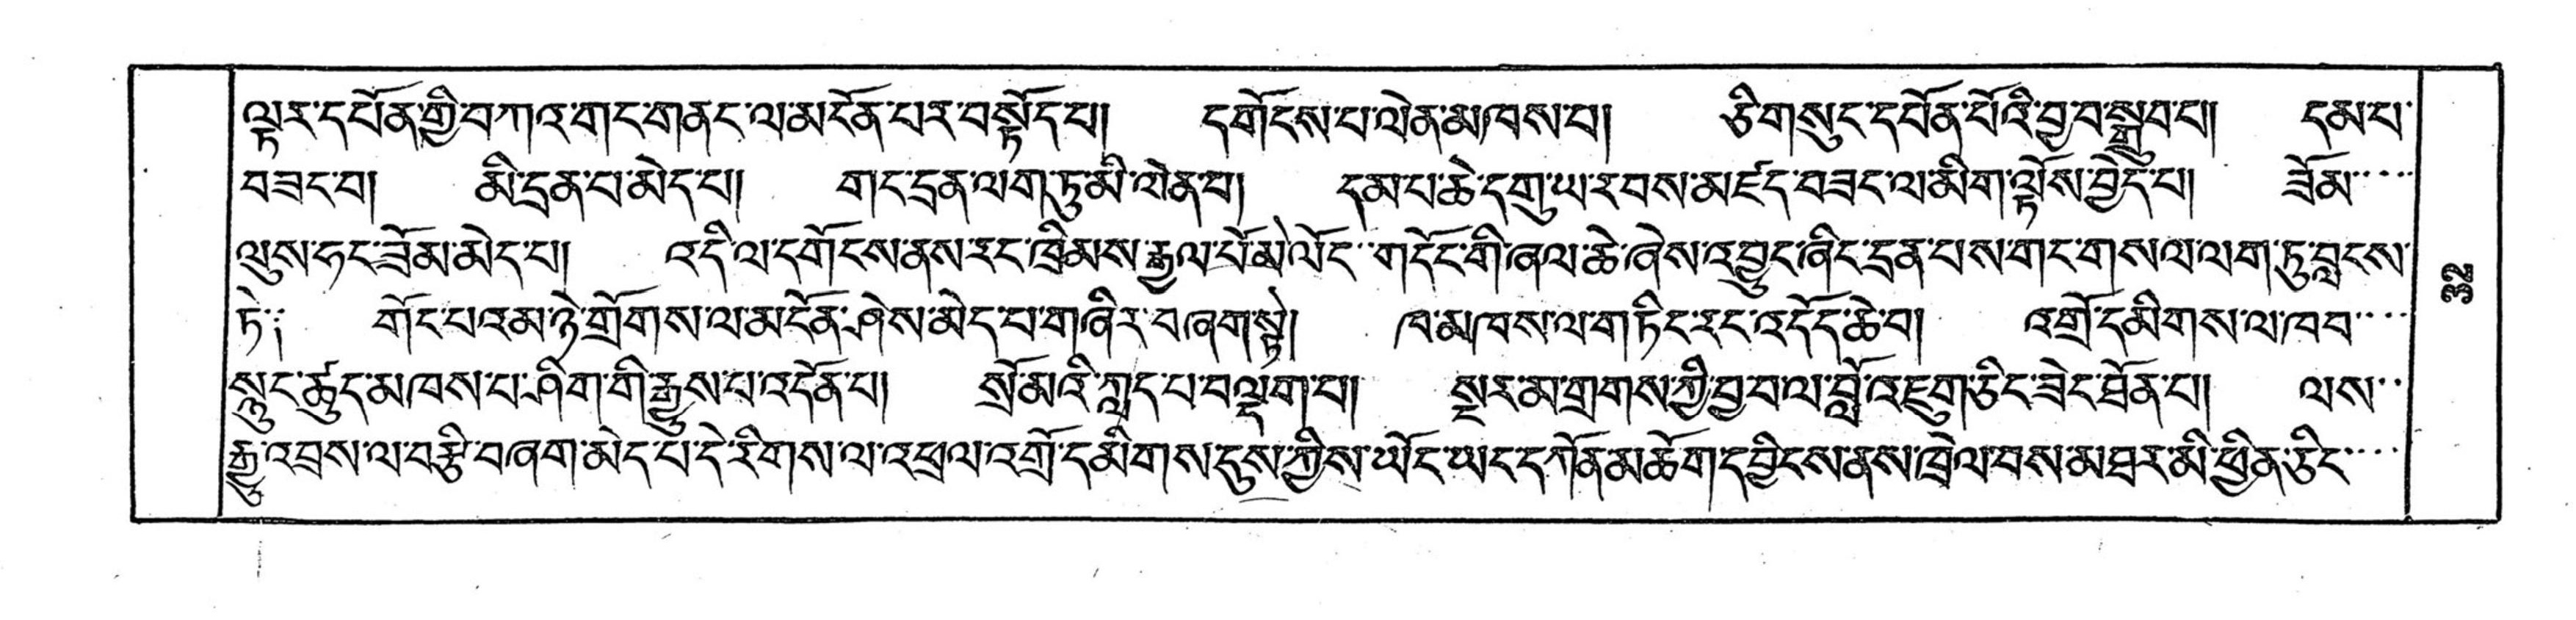 ལྟར་དཔོན་གྱི་བཀའ་གང་གནང་ལ་མངོན་པར་བསྟོད་པ། དགོངས་པ་ལེན་མཁས་པ། ཅིག་སུང་དཔོན་པོའི་བྱ་བ་སྒྲུབ་པ། དམ་པ་
བཟང་བ། མི་དྲན་པ་མེད་པ། གང་དྲན་ལག་ཏུ་མི་ལེན་པ། དམ་པ་ཆེ་དགུ་ཡ་རབས་མཛད་བཟང་ལ་མིག་ལྟོས་བྱེད་པ། ཟློམ་
ལུས་ཧང་ཟློམ་མེད་པ། འདི་ལ་དགོངས་ནས་རང་ཁྲིམས་རྒྱལ་པོ་མེ་ལོང་གདོང་གི་ཞལ་ཆེ་ཞེས་འབྱུང་ཞིང་དྲན་པས་གང་གསལ་ལག་ཏུ་བླངས་
ཏེ༔ གོང་པའམ་ཉེ་གྲོགས་ལ་མངོན་ཤེས་མེད་པ་གཞིར་བཞག་སྟེ། ཁ་མཁས་ལ་གཏིང་རང་འདོད་ཆེ་བ། འགྲོ་དམིགས་ལ་ཁབ་
སླུང་ཚུད་མཁས་པ་ཤིག་གི་རྒྱུས་པ་འདོན་པ། སྲོམའི་ཀླད་པ་བལྡག་པ། སྔར་མ་གྲགས་ཀྱི་བྱ་བ་ལ་བློ་འཇུག་ཅིང་ཟེང་ཐོན་པ། ལས་
རྒྱུ་འབྲས་ལ་བརྩི་བཞག་མེད་པ་དེ་རིགས་ལ་འཕྲལ་འགྲོ་དམིགས་དུས་ཀྱིས་ཡོང་ཡང་དཀོན་མཆོག་དབྱིངས་ནས་ཁྲེལ་བས་མཐར་མི་ཕྱིན་ཅིང་